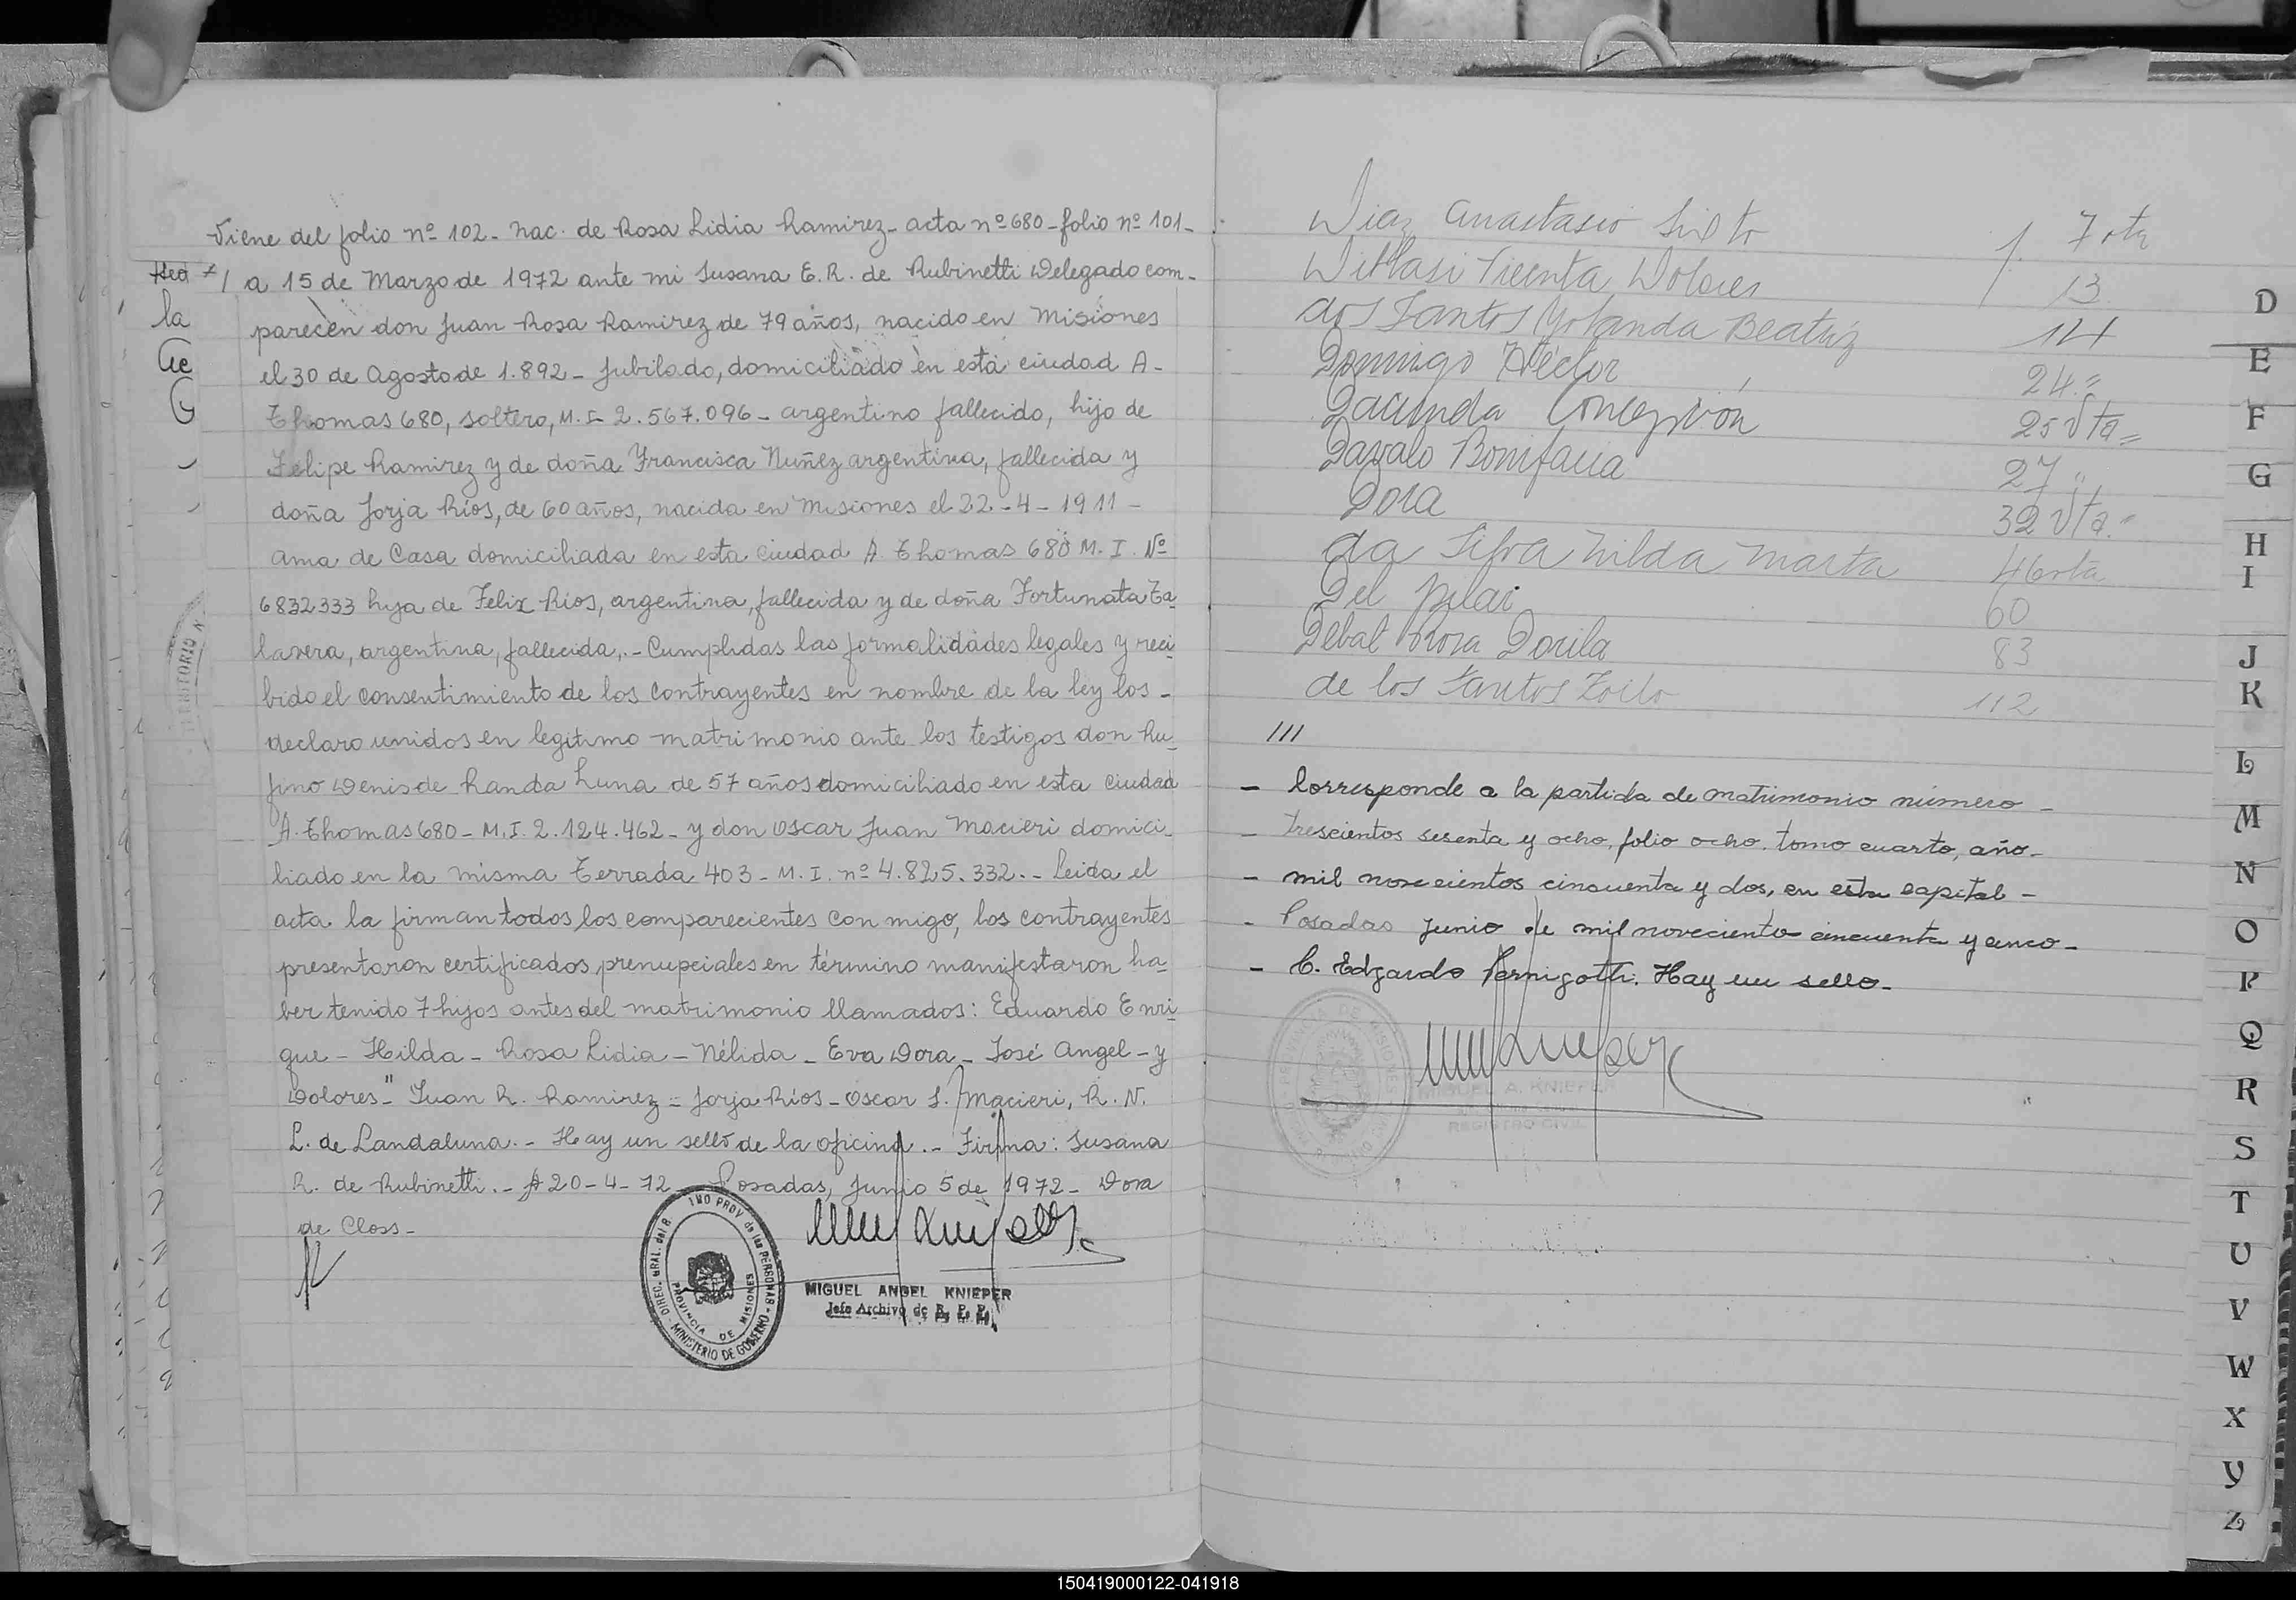 Viene del folio nº 102 - Nac. de Rosa Lidia Ramirez - acta nº 680 - folio nº 101 -
/ a 15 de Marzo de 1972 ante mi Susana E. R. de Rubinetti Delegado com-
parecen don Juan Rosa Ramirez de 79 años, nacido en Misiones
el 30 de Agosto de 1.892 - Jubilado, domiciliado en esta ciudad A -
Thomas 680, soltero, M. I. 2.567.096 - argentino fallecido, hijo de
Felipe Ramirez y de doña Francisca Nuñez argentina, fallecida y
doña Jorja Ríos, de 60 años, nacida en Misiones el 22 - 4 - 1911 -
ama de Casa domiciliada en esta ciudad A. Thomas 680 M. I. Nº
6832333 hija de Felix Rios, argentina, fallecida y de doña Fortunata Ta-
lavera, argentina, fallecida, - Cumplidas las formalidades legales y reci-
bido el consentimiento de los contrayentes en nombre de la ley los -
declaro unidos en legitimo matrimonio ante los testigos don Ru-
fino Denis de Landa Luna de 57 años domiciliado en esta ciudad
A. Thomas 680 - M. I. 2.124.462 - y don Oscar Juan Macieri domici-
liado en la misma Terrada 403 - M. I. nº 4.825.332. - Leida el
acta la firman todos los comparecientes con migo, los contrayentes
presentaron certificados prenupciales en término manifestaron ha-
ber tenido 7 hijos antes del matrimonio llamados: Eduardo Enri-
que - Hilda - Rosa Lidia - Nélida - Eva Dora - José Angel - y
Dolores" - Juan R. Ramirez = Jorja Ríos - Oscar J. Macieri, R. N.
L. de Landaluna. - Hay un sello de la oficina. - Firma: Susana
R. de Rubinetti. - A 20 - 4 - 72 - Posadas, Junio 5 de 1972 - Dora
de Closs -
PROVINCIA DE MISIONES
MINISTERIO DE GOBIERNO
MIGUEL ANGEL KNIEPER
Jefe Archivo de R. P. P.
la
G
Diaz Anastasio Sixto f. 7 vta
Vicenta Dolores 13
dos Santos Yolanda Beatriz 14
Domingo Héctor 24 =
Jacinda Concepción 25 Vta =
Davalo Bonifacia 27 "
Dora 32 Vta. "
da Silva Nilda Marta 46 vta
Del Pilar 60
Debat Rosa Dorila 83
de los Santos Zoilo 112
///
- Corresponde a la partida de matrimonio número -
- trescientos sesenta y ocho, folio ocho, tomo cuarto, año -
- mil novecientos cincuenta y dos, en esta capital -
- Posadas Junio de mil noveciento cincuenta y cinco -
- C. Edgardo Pernigotti. Hay un sello -
MIGUEL A. KNIEPER
REGISTRO CIVIL
D
E
F
G
H
I
J
K
L
M
N
O
P
Q
R
S
T
U
V
W
X
Y
Z
150419000122-041918